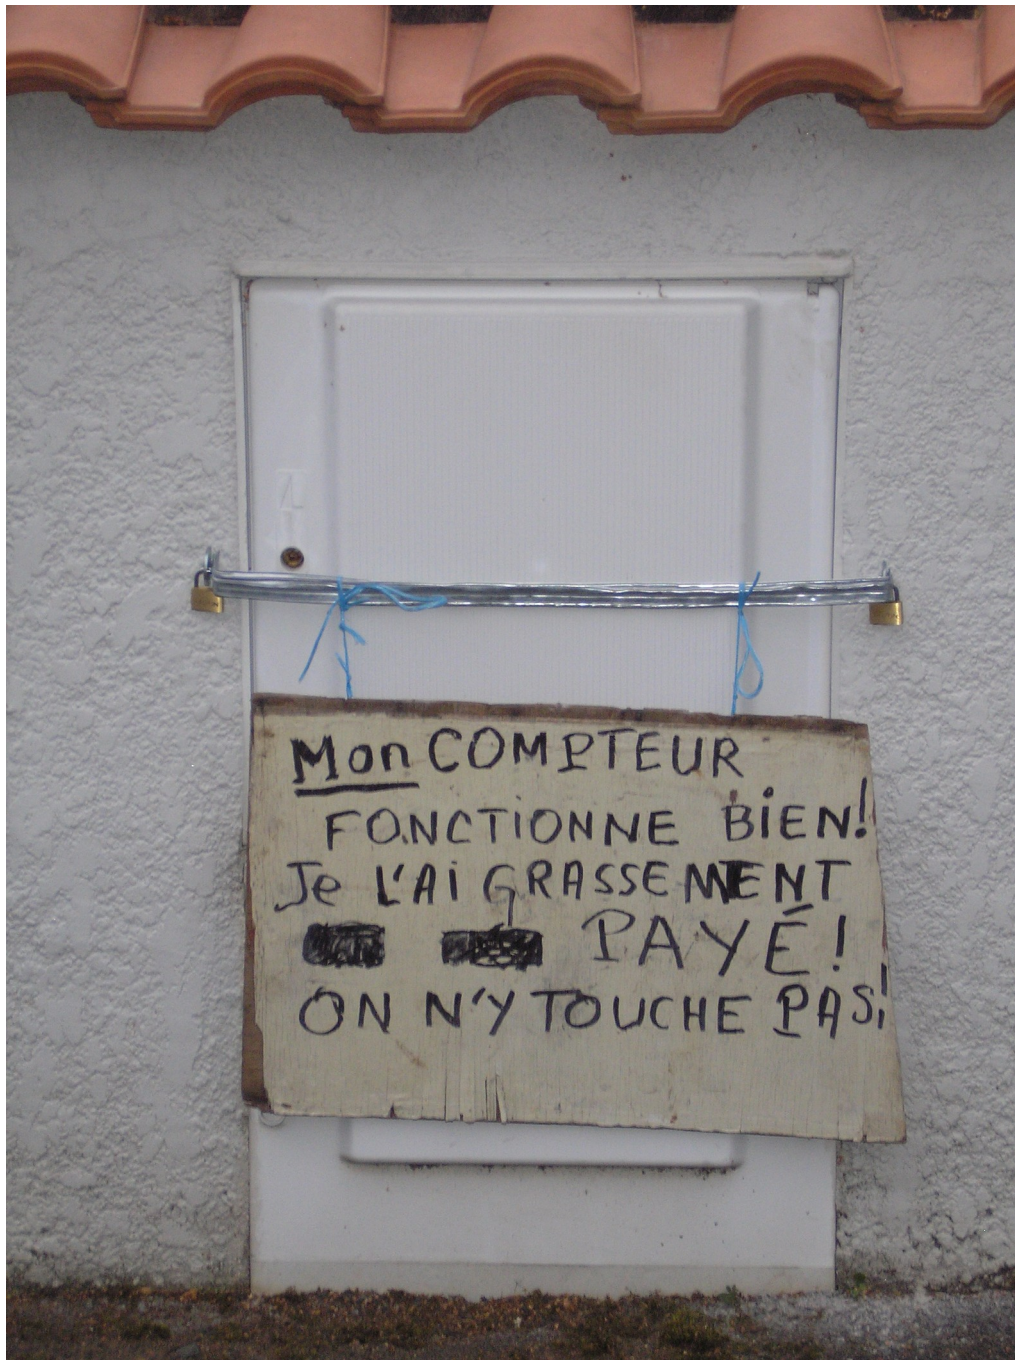 Mon COMPTEUR
FONCTIONNE BIEN!
Je L'Ai GRASSEMENT
PAYÉ!
ON N'Y TOUCHE PAS!